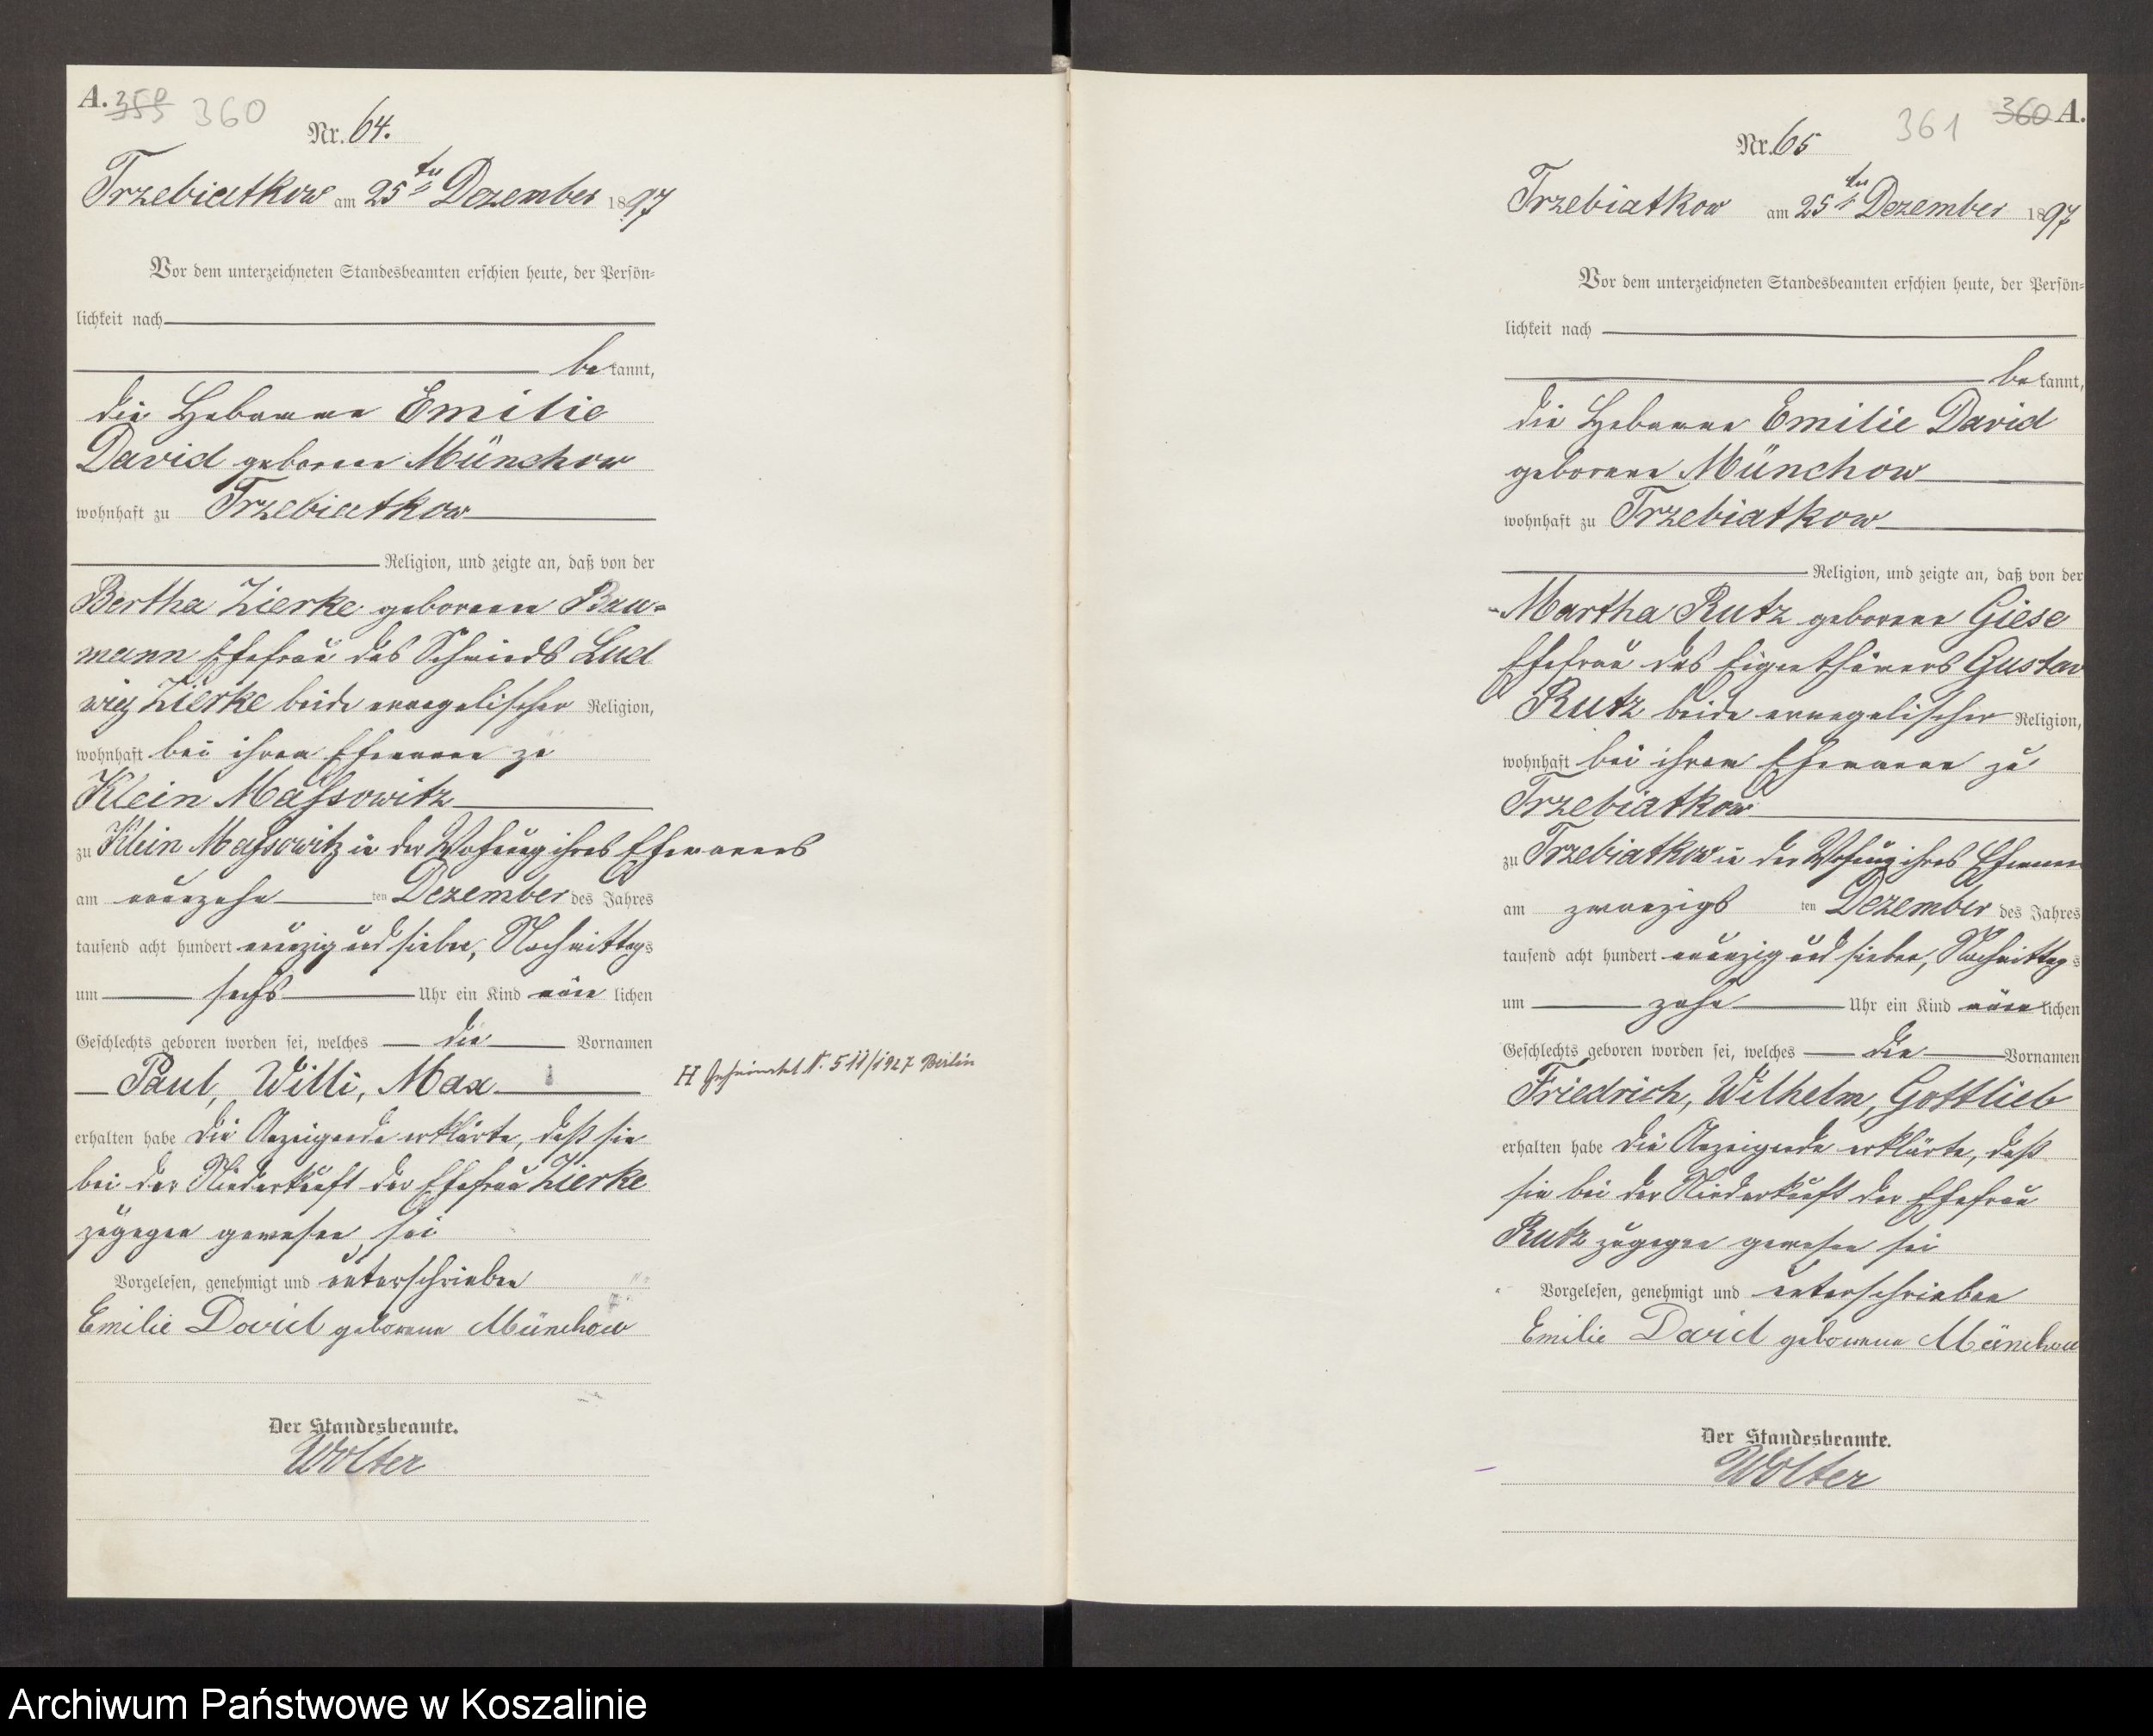 A. 359 360
Nr. 64.
Trzebiatkow am 25ten Dezember 1897
Vor dem unterzeichneten Standesbeamten erschien heute, der Persön=
lichkeit nach
bekannt,
die Hebamme Emilie
David geborene Münchow
wohnhaft zu Trzebiatkow
Religion, und zeigte an, daß von der
Bertha Zierke geborene Bau-
mann Ehefrau des Schmieds Lud
wig Zierke beide evangelischer Religion,
wohnhaft bei ihrem Ehemann zu
Klein Massowitz
zu Klein Massowitz in der Wohnung ihres Ehemannes
am neunzehnten Dezember des Jahres
tausend acht hundert neunzig und sieben, Nachmittags
um sechs Uhr ein Kind männlichen
Geschlechts geboren worden sei, welches die Vornamen
Paul, Willi, Max
H 511/1927 Berlin
erhalten habe die Anzeigende erklärte, daß sie
bei der Niederkunft der Ehefrau Zierke
zugegen gewesen sei
Vorgelesen, genehmigt und unterschrieben
Emilie David geborene Münchow
Der Standesbeamte.
Wolter
361 360 A.
Nr. 65
Trzebiatkow am 25ten Dezember 1897
Vor dem unterzeichneten Standesbeamten erschien heute, der Persön=
lichkeit nach
bekannt,
die Hebamme Emilie David
geborene Münchow
wohnhaft zu Trzebiatkow
Religion, und zeigte an, daß von der
Martha Rutz geborene Giese
Ehefrau des Eigenthümers Gustav
Rutz beide evangelischer Religion,
wohnhaft bei ihrem Ehemann zu
Trzebiatkow
zu Trzebiatkow in der Wohnung ihres Ehemann
am zwanzigsten Dezember des Jahres
tausend acht hundert neunzig und sieben, Nachmittags
um zehn Uhr ein Kind männlichen
Geschlechts geboren worden sei, welches die Vornamen
Friedrich, Wilhelm, Gottlieb
erhalten habe die Anzeigende erklärte, daß
sie bei der Niederkunft der Ehefrau
Rutz zugegen gewesen sei
Vorgelesen, genehmigt und unterschrieben
Emilie David geborene Münchow
Der Standesbeamte.
Wolter
Archiwum Państwowe w Koszalinie